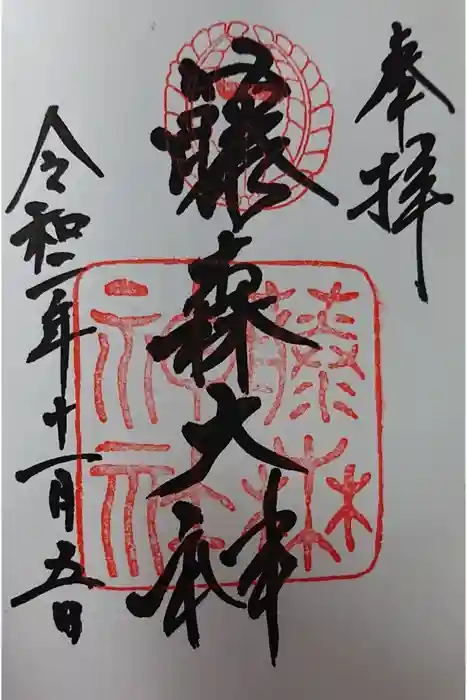 奉拝
藤森大神
令和二年十一月五日
藤森
神社